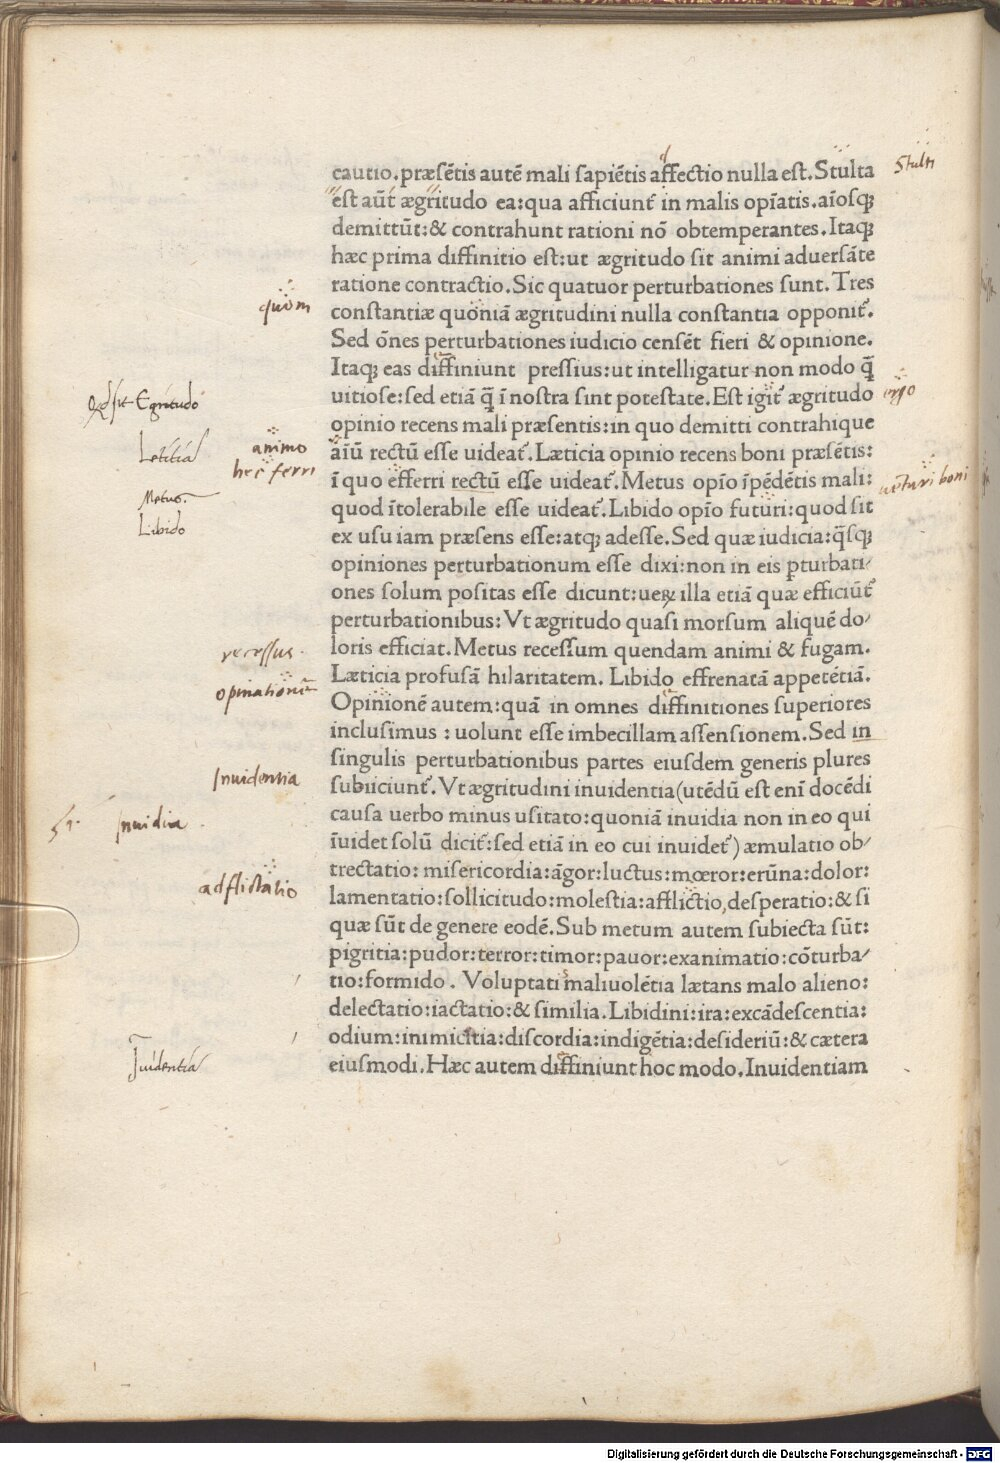 cautio. præsētis autē mali sapiētis affectio nulla est. Stulta
Stulti
est aūt ægritudo ea: qua afficiunt᷑ in malis opīatis. aīosqꝫ
demittūt: & contrahunt rationi nō obtemperantes. Itaqꝫ
hæc prima diffinitio est: ut ægritudo sit animi aduersāte
ratione contractio. Sic quatuor perturbationes sunt. Tres
quom
constantiæ quoniā ægritudini nulla constantia opponit᷑.
Sed ōnes perturbationes iudicio censēt fieri & opinione.
Itaqꝫ eas diffiniunt pressius: ut intelligatur non modo q̄
uitiose: sed etiā q̄ ī nostra sint potestate. Est igit᷑ ægritudo
ergo
Qd sit Egritudo
opinio recens mali præsentis: in quo demitti contrahique
animo
Letitia
aīū rectū esse uideat᷑. Læticia opinio recens boni præsētis:
hec ferri
ī quo efferri rectū esse uideat᷑. Metus opīo īpēdētis mali:
uenturi boni
Metus.
quod ītolerabile esse uideat᷑. Libido opīo futuri: quod sit
Libido
ex usu iam præsens esse: atqꝫ adesse. Sed quæ iudicia: q̄sqꝫ
opiniones perturbationum esse dixi: non in eis ꝑturbati⸗
ones solum positas esse dicunt: ueꝝ illa etiā quæ efficiūt᷑
perturbationibus: Vt ægritudo quasi morsum aliquē do⸗
loris efficiat. Metus recessum quendam animi & fugam.
recessus.
Læticia profusā hilaritatem. Libido effrenatā appetētiā.
opinationē
Opinionē autem: quā in omnes diffinitiones superiores
inclusimus : uolunt esse imbecillam assensionem. Sed in
singulis perturbationibus partes eiusdem generis plures
Inuidentia
subiiciunt᷑. Vt ægritudini inuidentia (utēdū est enī docēdi
causa uerbo minus usitato: quoniā inuidia non in eo qui
Inuidia
īuidet solū dicit᷑: sed etiā in eo cui inuidet᷑) æmulatio ob⸗
trectatio: misericordia: āgor: luctus: mœror: erūna: dolor:
adflictatio
lamentatio: sollicitudo: molestia: afflictio, desperatio: & si
quæ sūt de genere eodē. Sub metum autem subiecta sūt:
pigritia: pudor: terror: timor: pauor: exanimatio: cōturba⸗
tio: formido . Voluptatis maliuolētia lætans malo alieno:
delectatio: iactatio: & similia. Libidini: ira: excādescentia:
odium: inimicitia: discordia: indigētia: desideriū: & cætera
Inuidentia
eiusmodi. Hæc autem diffiniunt hoc modo. Inuidentiam
Digitalisierung gefördert durch die Deutsche Forschungsgemeinschaft - DFG